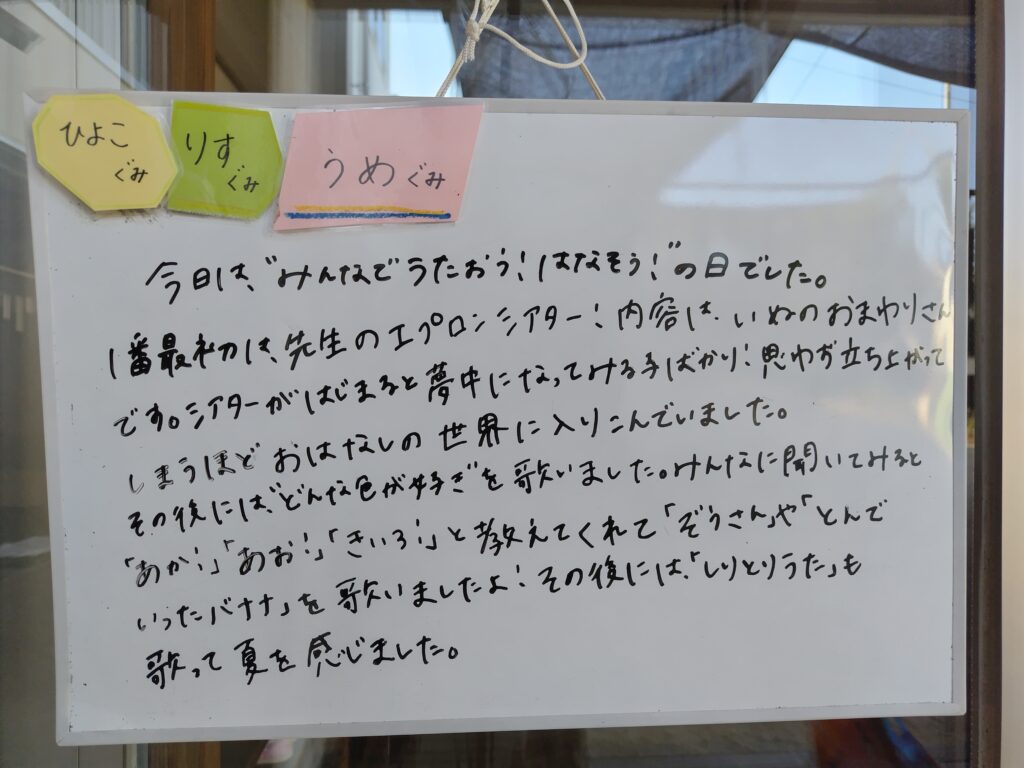 ひよこ
ぐみ
りす
ぐみ
うめぐみ
今日は、"みんなでうたおう!はなそう!"の日でした。
1番最初は、先生のエプロンシアター!内容は、いぬのおまわりさん
です。シアターがはじまると夢中になってみる子ばかり!思わず立ち上がって
しまうほどおはなしの世界に入りこんでいました。
その後には、"どんな色が好き"を歌いました。みんなに聞いてみると
「あか!」「あお!」「きいろ!」と教えてくれて「ぞうさん」や「とんで
いったバナナ」を歌いましたよ!その後には、「しりとりうた」も
歌って夏を感じました。